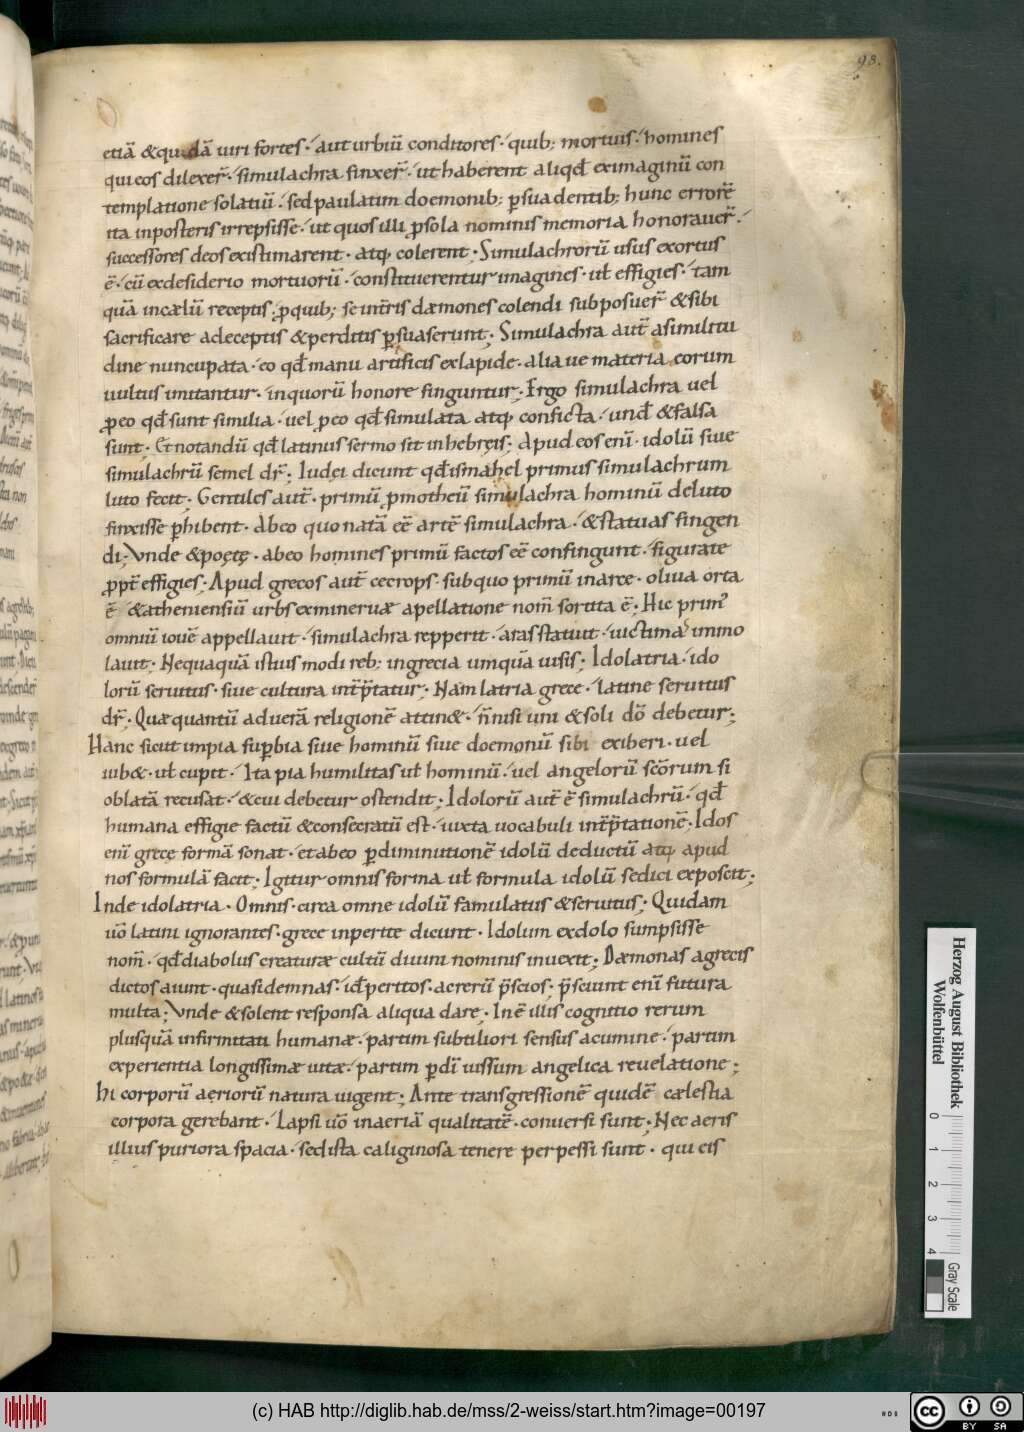 98.
etiā &quidā uiri fortes· aut urbiū conditores· quib; mortuis· homines
qui eos dilexer̄· simulachra finxer̄· ut haberent aliqđ ex imaginū con
templatione solatiū· sed paulatim doemonib; ꝑsuadentib; hunc errorē
ita inposteris irrepsisse· ut quos illi ꝓ sola nominis memoria honorauer̄·
successores deos existimarent· atq; colerent· Simulachrorū usus exortus
ē· cū ex desiderio mortuorū· constituerentur imagines· uł effigies· tam
quā in cælū receptis· ꝓ quib; se int̄ris dæmones colendi subposuer̄ & sibi
sacrificare a deceptis & perditis ꝑsuaserunt· Simulachra aut̄ a similitu
dine nuncupata· eo qđ manu artificis ex lapide· alia ue materia eorum
uultus imitantur· in quorū honore finguntur· Ergo simulachra uel
ꝓ eo qđ sunt similia· uel ꝓ eo qđ simulata atq; conficta· und̄ & falsa
sunt· Et notandū qđ latinus sermo sit in hebreis; Apud eos enī· idolū siue
simulachrū semel dr̄; Iudei dicunt qđ ismahel primus simulachrum
luto fecit· Gentiles aut̄· primū ꝓmotheū simulachra hominū de luto
finxisse ꝑhibent· Ab eo quo natā eē artē simulachra· & statuas fingen
di; Vnde & poetę· ab eo homines primū factos eē confingunt· figurate
ꝓpt̄ effigies; Apud grecos aut̄ cecrops· sub quo primū in arce· oliua orta
ē· & atheniensiū urbs ex mineruæ apellatione nom̄ sortita ē; Hic prim᾽
omniū iouē appellauit· simulachra repperit· aras statuit· uictimas immo
lauit· Nequaquā istius modi reb; in grecia umquā uisis; Idolatria· ido
lorū seruitus· siue cultura int̄p̄tatur· Nam latria grece· latine seruitus
dr̄· Quæ quantū ad uerā religionē attin&· n̄ nisi uni & soli dō debetur;
Hanc sicut impia suꝑbia siue hominū siue doemonū sibi exiberi· uel
iub&· uł cupit· Ita pia humilitas uł hominū· uel angelorū scōrum si
oblatā recusat· & cui debetur ostendit; Idolorū aut̄ ē simulachrū· qđ
humana effigie factū & consecratū est· iuxta uocabuli int̄p̄tationē; Idos
enī grece formā sonat· et ab eo ꝑ diminutionē idolū deductū atq; apud
nos formulā facit; Igitur omnis forma uł formula idolū se dici exposcit;
Inde idolatria· Omnis· circa omne idolū famulatus & seruitus; Quidam
uō latini ignorantes· grece inperite dicunt· Idolum ex dolo sumpsisse
nom̄· qđ diabolus creaturæ cultū diuini nominis inuexit; Dæmonas a grecis
dictos aiunt· quasi demnas· iđ peritos· ac rerū p̄scios· p̄sciunt enī futura
multa; Vnde & solent responsa aliqua dare· Inē illis cognitio rerum
plusquā infirmitati humanæ· partim subtiliori sensus acumine· partim
experientia longissimæ uitæ· partim ꝑ dī iussum angelica reuelatione;
Hi corporū aeriorū natura uigent; Ante transgressionē quidē cælestia
corpora gerebant· Lapsi uō in aeriā qualitatē· conuersi sunt; Nec aeris
illius puriora spacia· sed ista caliginosa tenere perpessi sunt· qui eis
Herzog August Bibliothek
Wolfenbüttel
0 1 2 3 4
Gray Scale
(c) HAB http://diglib.hab.de/mss/2-weiss/start.htm?image=00197
cc BY SA